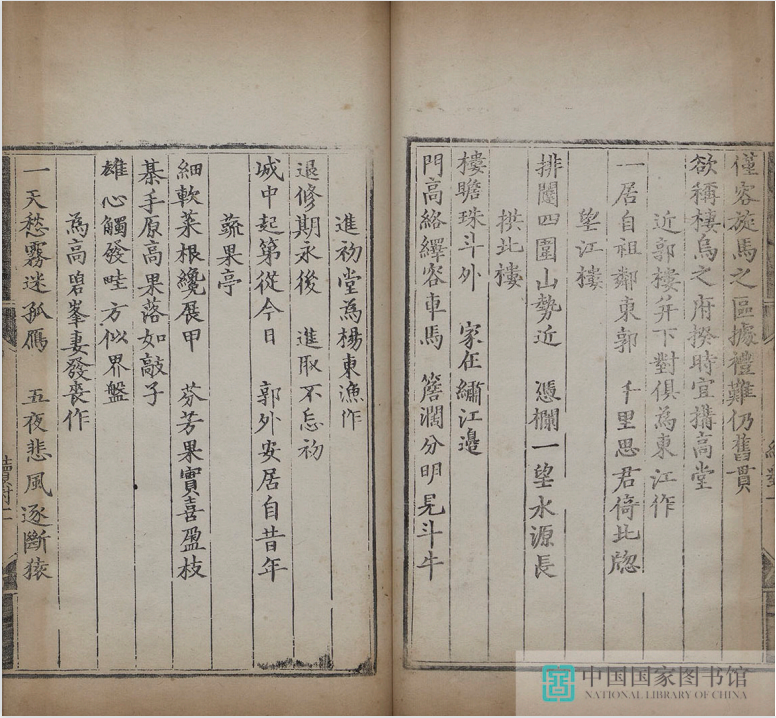 僅容旋馬之區據禮難仍舊貫
欲稱棲烏之府揆時宜搆高堂
近郭樓并下對俱為東江作
一居自祖鄰東郭　千里思君倚北牕
望江樓
排闥四圍山勢近　憑欄一望水源長
拱北樓
樓瞻珠斗外　家在繡江邊
門高絡繹容車馬　簷濶分明見斗牛
進初堂為楊東漁作
退修期永後　進取不忘初
城中起第從今日　郭外安居自昔年
蔬果亭
細軟菜根纔展甲　芬芳果實喜盈枝
棊手原高果落如敲子
雄心觸發畦方似界盤
為高碧峯妻發喪作
一天愁霧迷孤鴈　五夜悲風逐斷猿
中国国家图书馆
NATIONAL LIBRARY OF CHINA